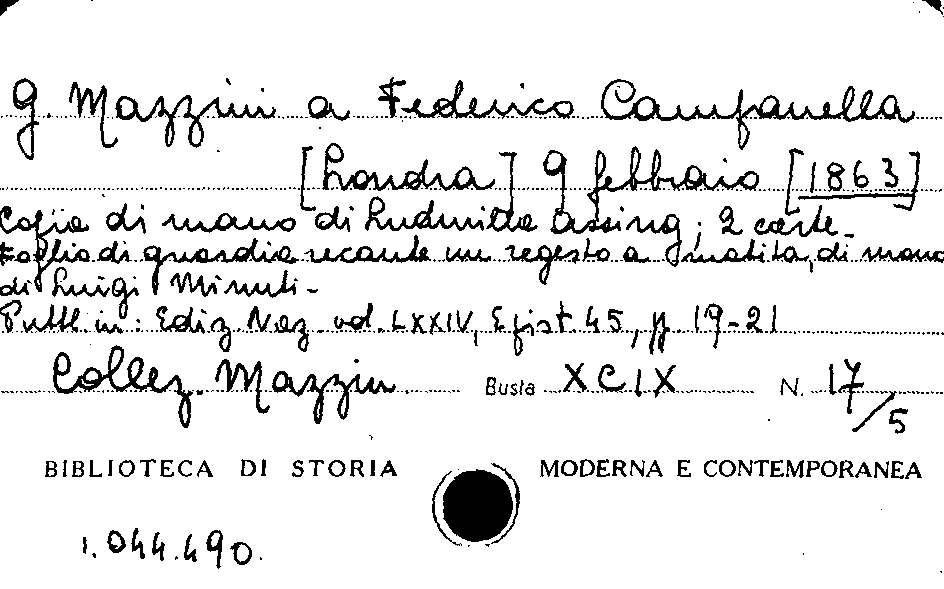 G. Mazzini a Federico Campanella
[Londra] 9 febbraio [1863]
Copia di mano di Ludmilla Assing; 2 carte.
Foglio di guardia recante un regesto a matita, di mano
di Luigi Minuti.
Pubbl. in: Ediz. Naz. vol. LXXIV, Epist. 45, pp. 19-21
Collez. Mazzini Busta XCIX N. 17/5
BIBLIOTECA DI STORIA MODERNA E CONTEMPORANEA
1.044.490.